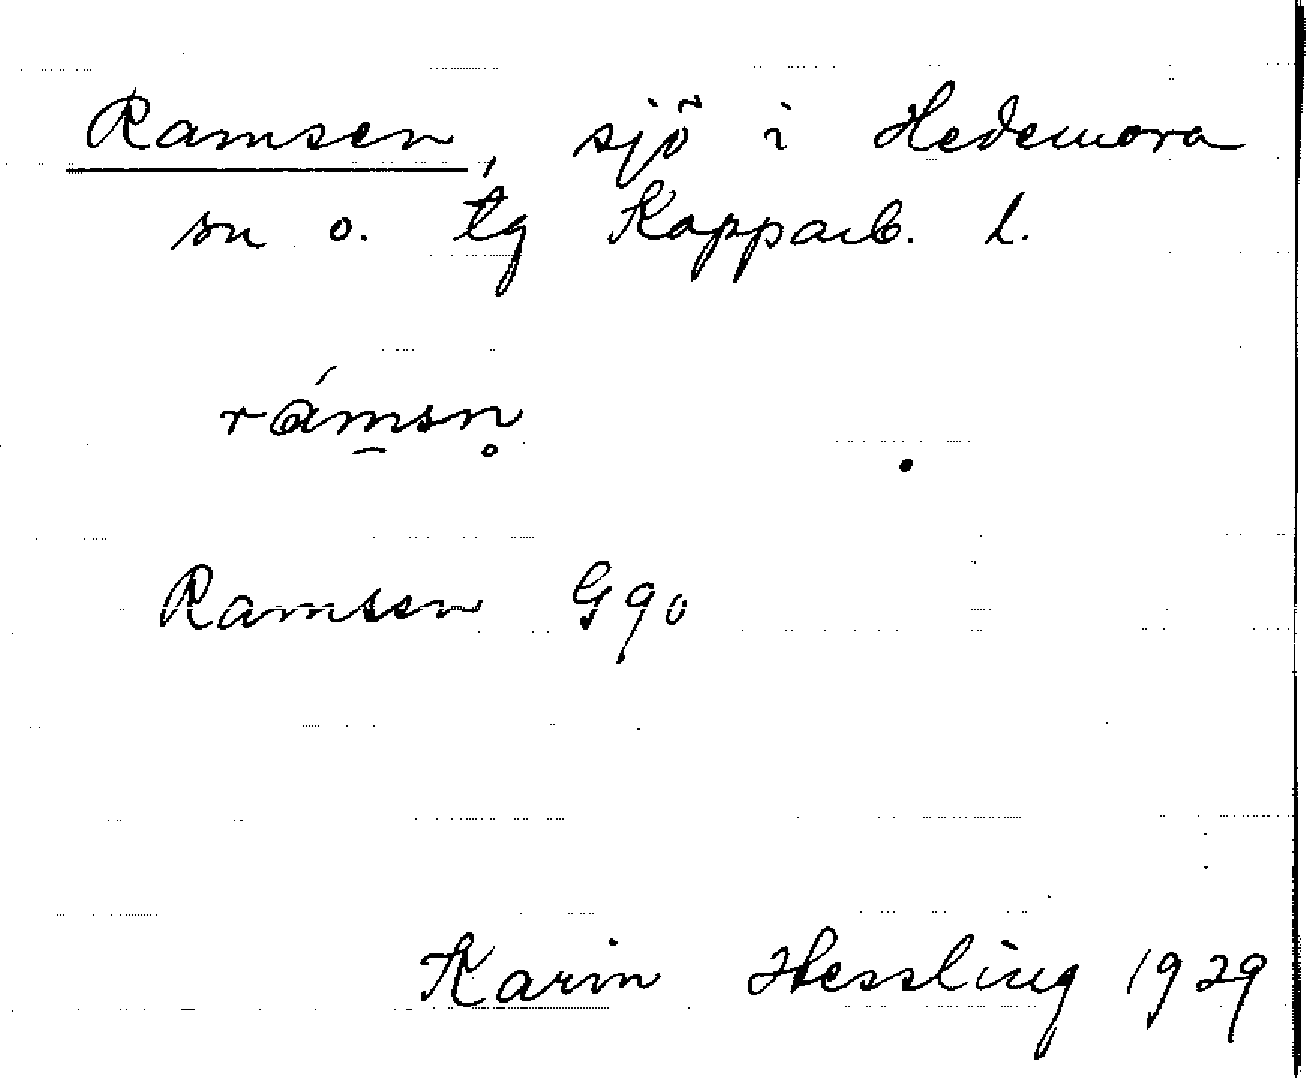 Ramsen, sjö i Hedemora
sn o. tg Kopparb. l.
rámsn̥
Ramsen G90
Karin Hessling 1929